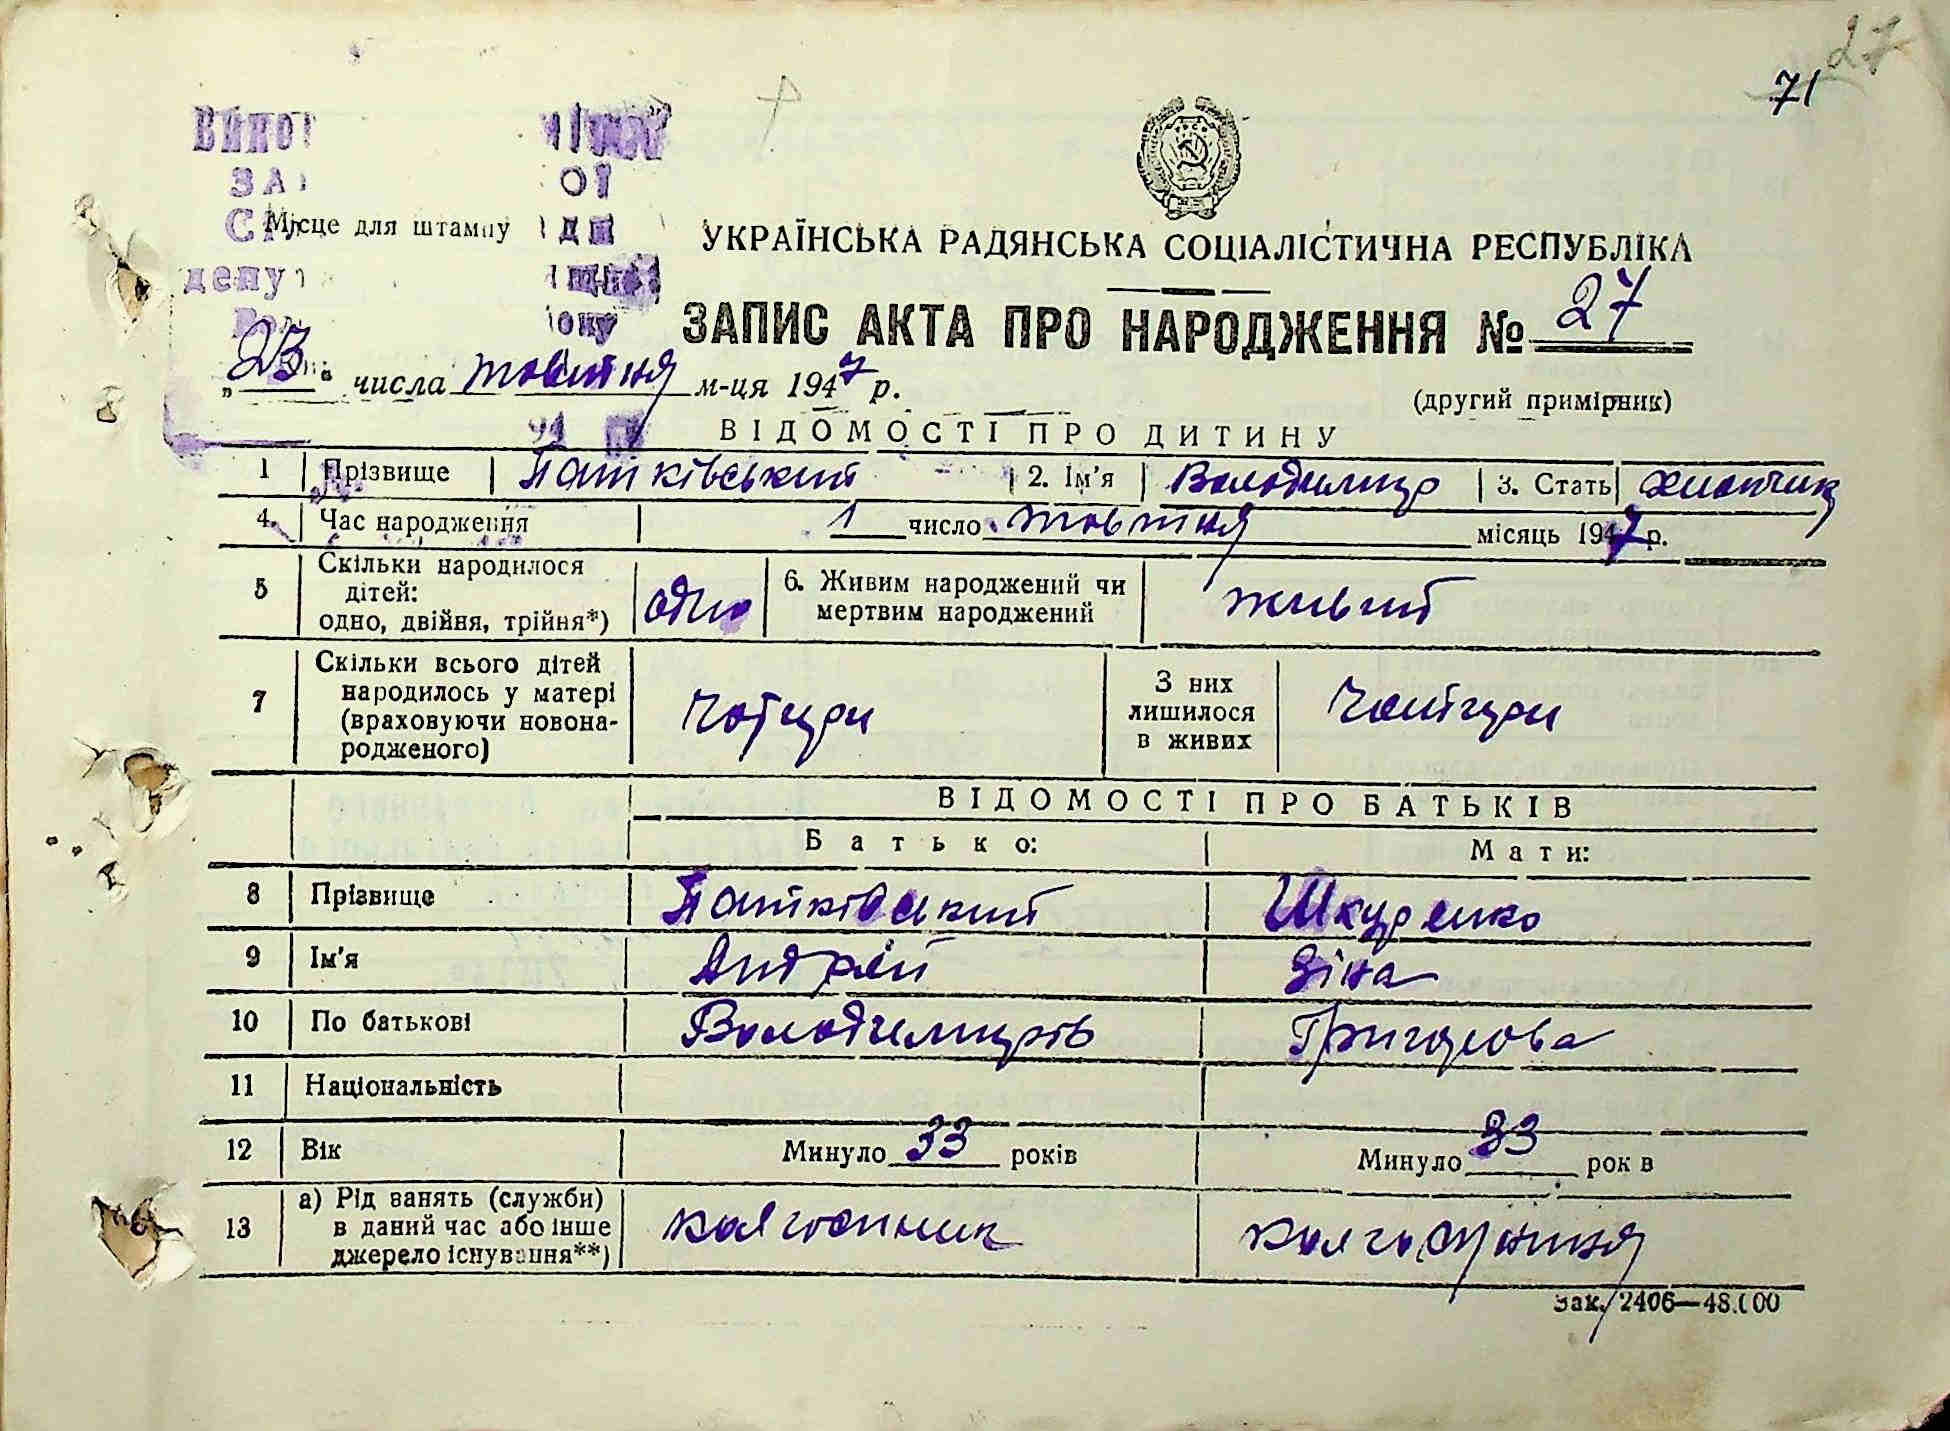 27
71
Місце для штампу
УКРАЇНСЬКА РАДЯНСЬКА СОЦІАЛІСТИЧНА РЕСПУБЛІКА
ЗАПИС АКТА ПРО НАРОДЖЕННЯ № 27
„23" числа жовтня м-ця 1947 р.
(другий примірник)
ВІДОМОСТІ ПРО ДИТИНУ
1 Прізвище Патківський 2. Ім'я Володимир 3. Стать хлопчик
4. Час народження 1 число жовтня місяць 1947 р.
5 Скільки народилося
дітей:
одно, двійня, трійня*) одно
6. Живим народжений чи
мертвим народжений живий
7 Скільки всього дітей
народилось у матері
(враховуючи новона-
родженого) чотири
З них
лишилося
в живих чотири
ВІДОМОСТІ ПРО БАТЬКІВ
Батько: Мати:
8 Прізвище Патківський Шкуренко
9 Ім'я Андрій Зіна
10 По батькові Володимирів Григорова
11 Національність
12 Вік Минуло 33 років Минуло 33 рок в
13 а) Рід занять (служби)
в даний час або інше
джерело існування**) колгоспник колгоспниця
Зак. 2406—48.000